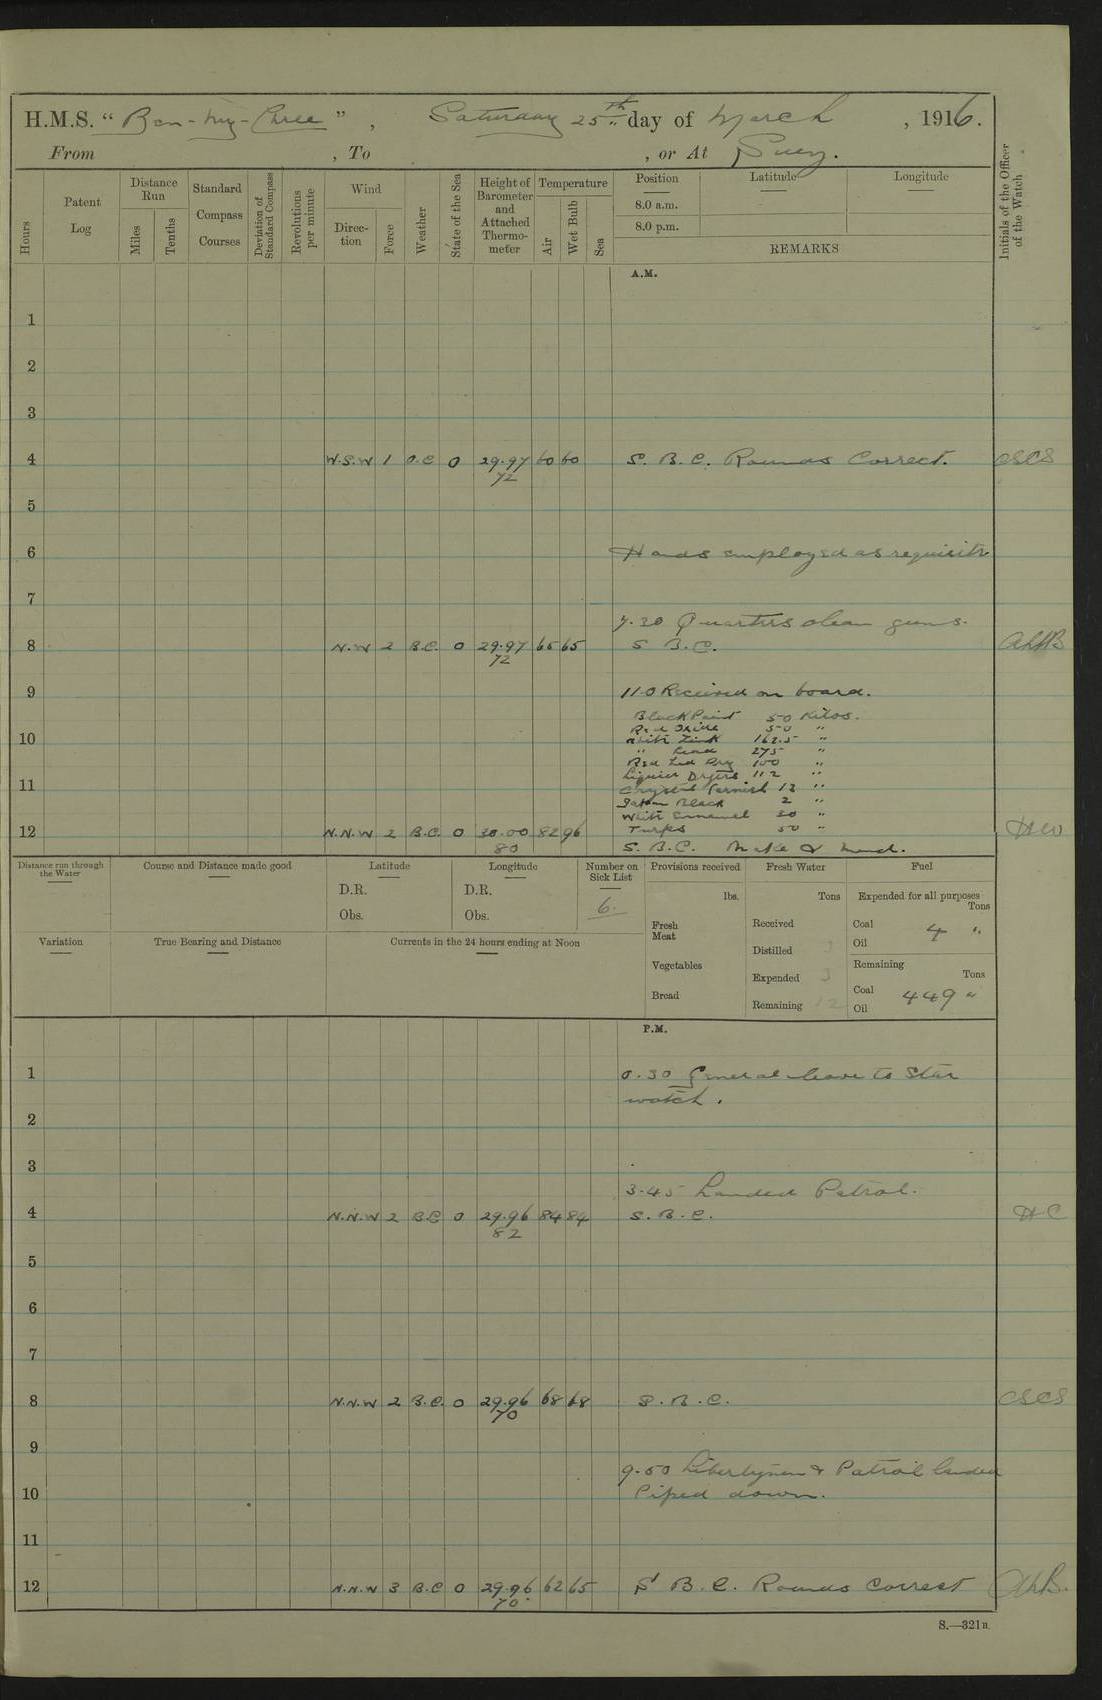 H.M.S. “Ben-my-Chree” , Saturday 25th day of March , 1916.
From , To , or At Suez.
Hours
Patent Log
Distance Run
Miles
Tenths
Standard Compass Courses
Deviation of Standard Compass
Revolutions per minute
Wind
Direction
Force
Weather
State of the Sea
Height of Barometer and Attached Thermometer
Temperature
Air
Wet Bulb
Sea
Position
8.0 a.m.
8.0 p.m.
Latitude
Longitude
REMARKS
Initials of the Officer of the Watch
A.M.
1
2
3
4 W.S.W 1 O.C 0 29.97 60 60 S. B. C. Rounds Correct. CSCS
72
5
6 Hands employed as requisite
7
7.30 Quarters clean guns.
8 N.W 2 B.C. 0 29.97 65 65 S B.C. AHB
72
9 11.0 Received on board.
Black Paint 50 Kilos.
Red Oxide 50 "
10 White Zink 162.5 "
" Lead 275 "
Red Led Dry 100 "
Liquid Dryers 112 "
11 Crystal Varnish 12 "
Black 2 "
White Enamel 30 "
12 N.N.W 2 B.C. 0 30.00 82 96 Turps 50 " HW
80 S. B.C. Make & Mend.
Distance run through the Water
Course and Distance made good
Latitude
D.R.
Obs.
Longitude
D.R.
Obs.
Number on Sick List
6.
Variation
True Bearing and Distance
Currents in the 24 hours ending at Noon
Provisions received
lbs.
Fresh Meat
Vegetables
Bread
Fresh Water
Tons
Received
Distilled 3
Expended 3
Remaining 12
Fuel
Expended for all purposes
Tons
Coal 4 "
Oil
Remaining
Tons
Coal 449 "
Oil
P.M.
1 0.30 General leave to Star
watch.
2
3
3.45 Landed Patrol.
4 N.N.W 2 B.C 0 29.96 84 84 S. B. C. HC
82
5
6
7
8 N.N.W 2 B.C. 0 29.96 68 68 S. B. C. CSCS
70
9
9.50 Libertymen & Patrol landed
10 Piped down.
11
12 N.N.W 3 B.C 0 29.96 62 65 S B. C. Rounds Correct AHB.
70
S.—321B.